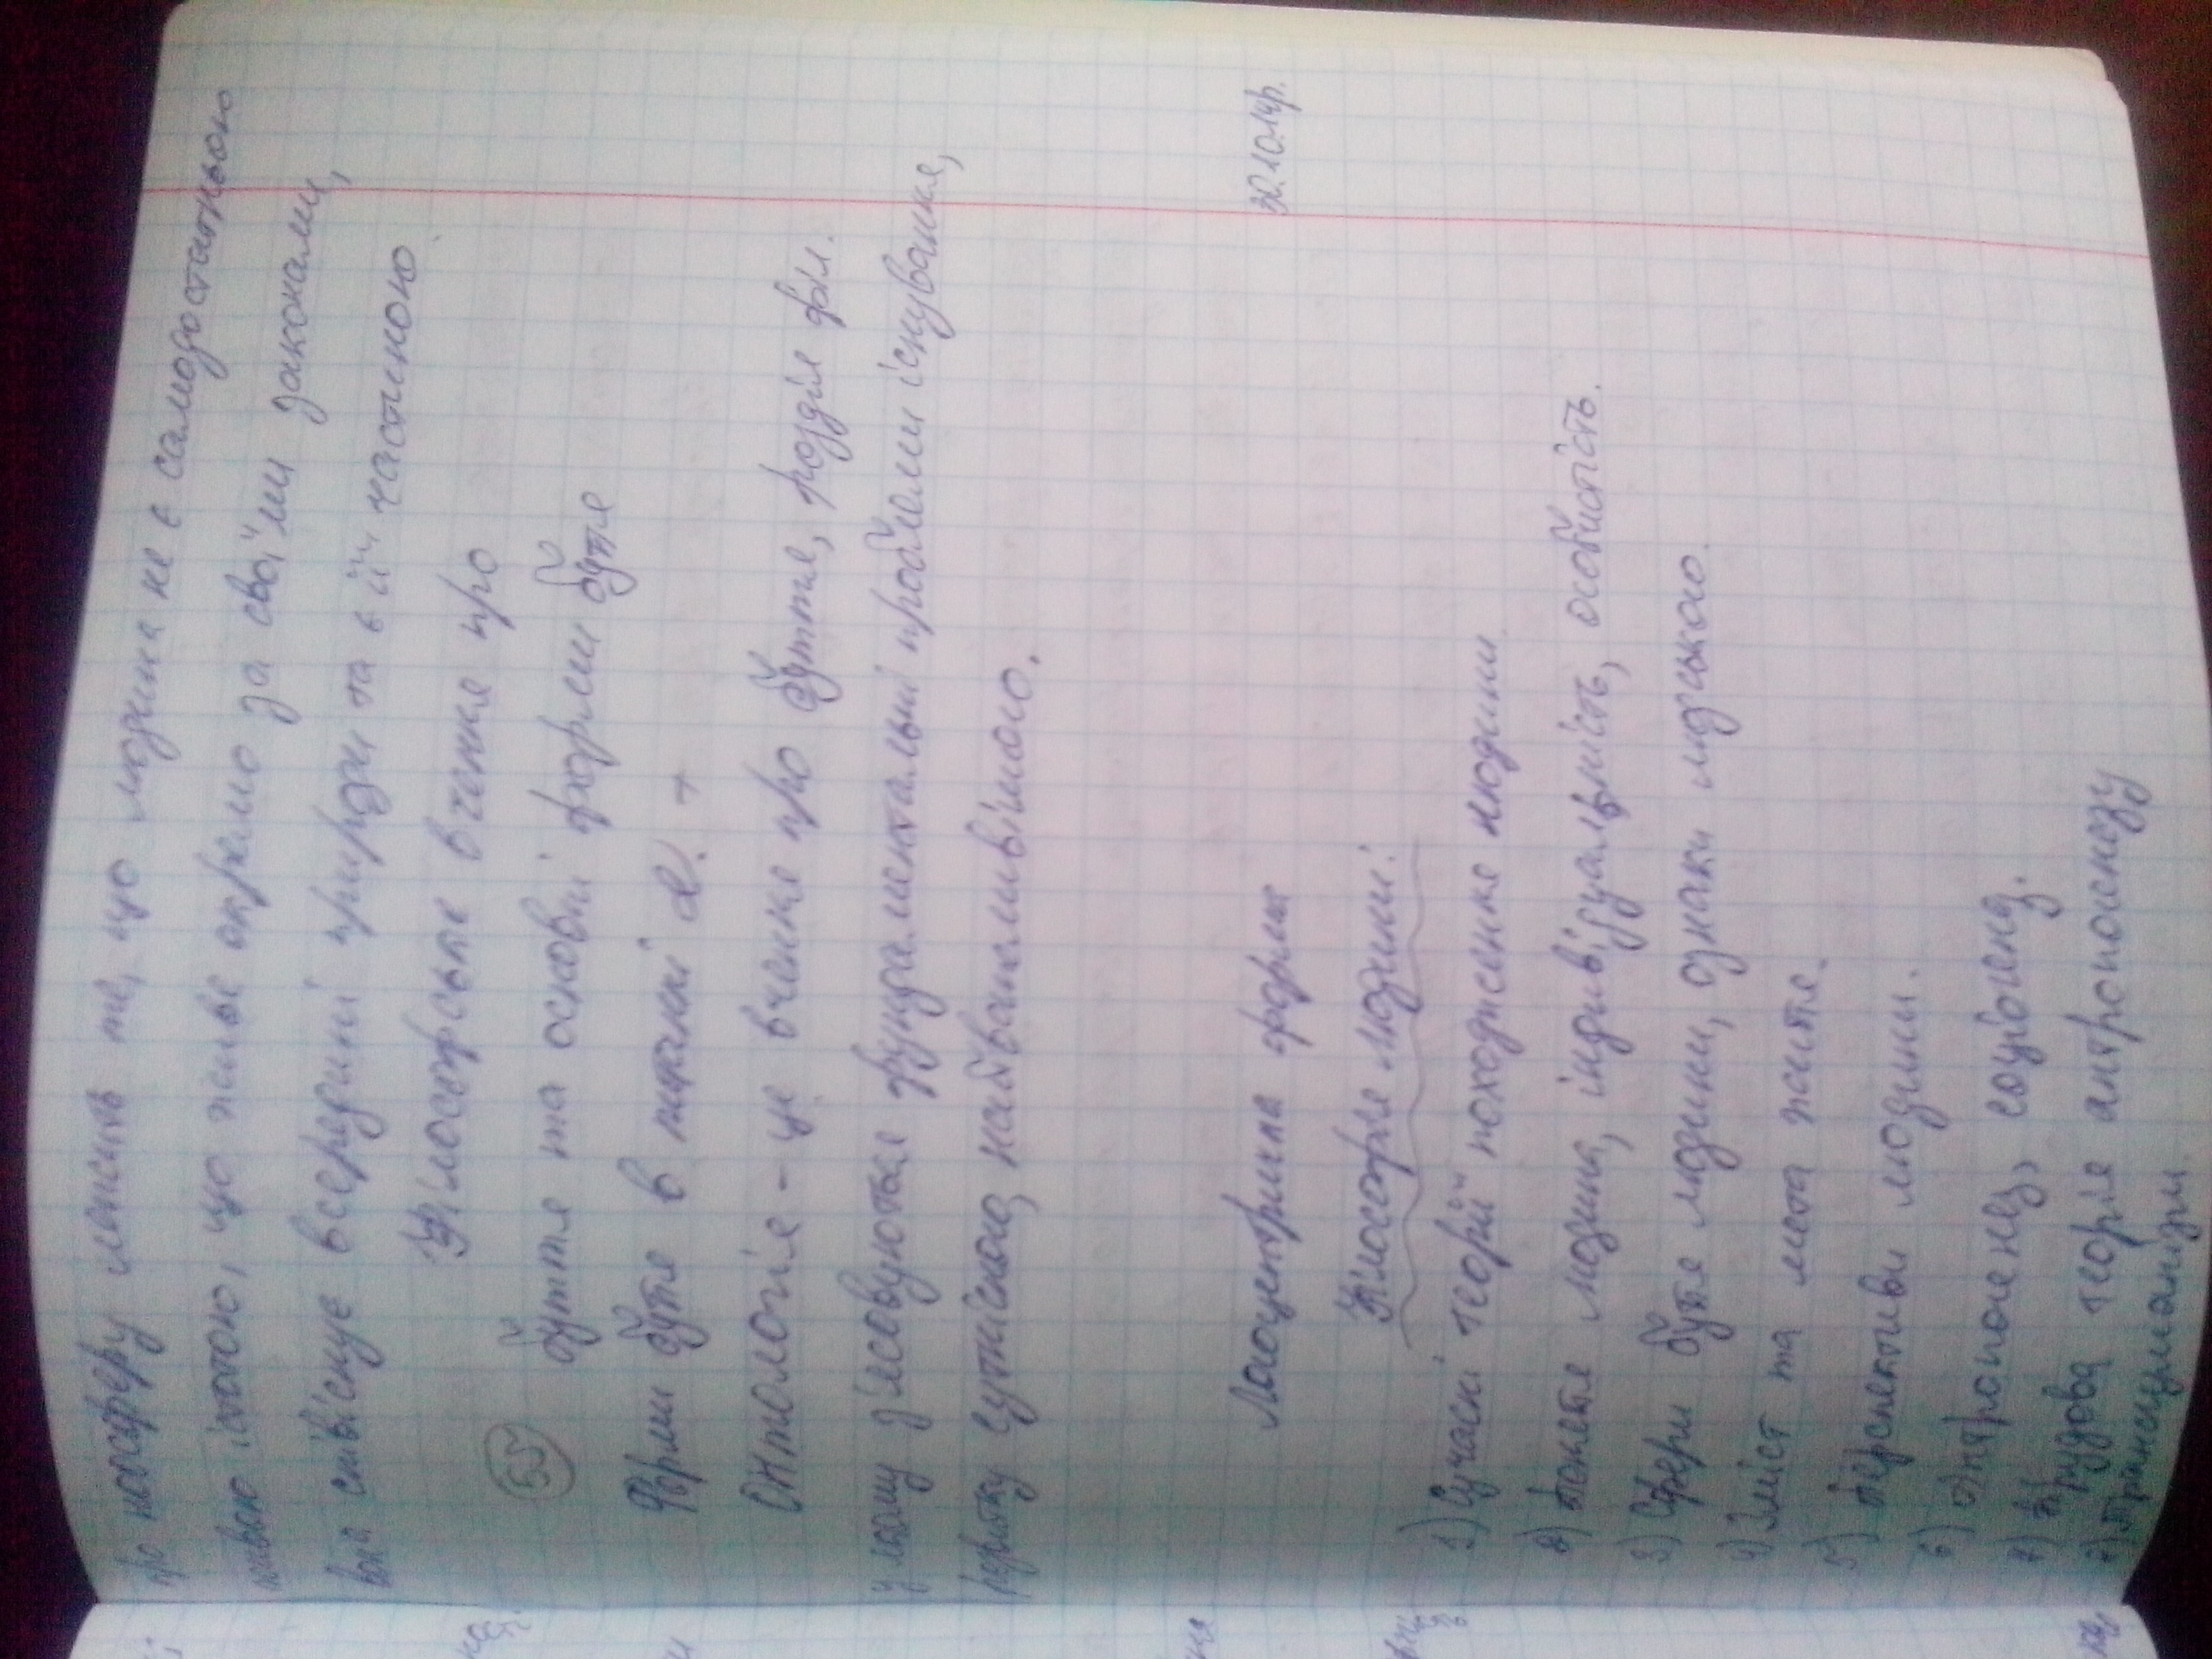 про ноосферу лежить те, що людина не є самодостатньою
живою істотою, що живе окремо за своїми законами,
вона співіснує всередині природи та є її частиною.
Філософське вчення про
55 буття та основні форми буття
Форми буття в питанні 2. +
Онтологія – це вчення про буття, розділ філ.
у якому з'ясовуються фундаментальні проблеми існування,
розвитку сутнісного, найважливішого.
Логоцентрична форма
30.10.14р.
Філософія людини:
1) Сучасні теорії походження людини.
2) Поняття людина, індивідуальність, особистість.
3) Сфери буття людини, ознаки людського.
4) Зміст та мета життя.
5) Перспективи людини.
6) Антропогенез, соціогенез.
7) Трудова теорія антропогенезу
8) Трансгуманізм.